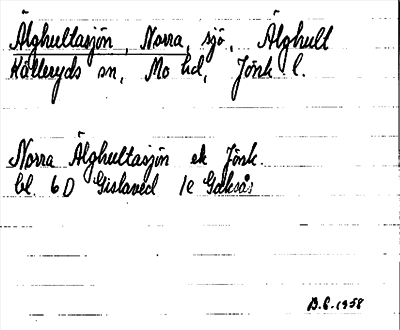 Älghultasjön, Norra, sjö, Älghult
Kålleryds sn, Mo hd, Jönk l.
Norra Älghultasjön ek Jönk.
bl 6D Gislaved 1e Gaksås
B.E. 1958